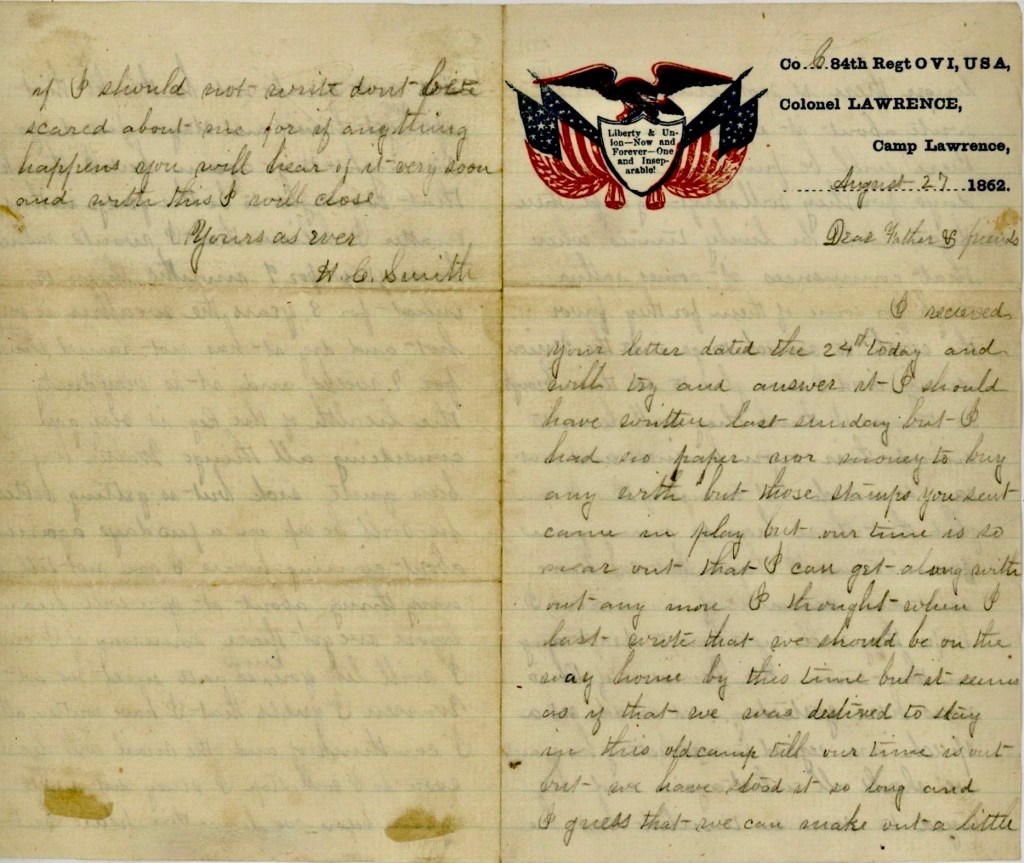 if I should not write dont be
scared about me for if anything
happens you will hear of it very soon
and with this I will close
Yours as ever
H C. Smith
Liberty & Un-
ion—Now and
Forever—One
and Insep-
arable!
Co. C 84th Regt OVI, USA,
Colonel LAWRENCE,
Camp Lawrence,
August 27 1862.
Dear Father & friends
I recieved
your letter dated the 24th today and
will try and answer it I should
have written last sunday but I
had no paper nor money to buy
any with but those stamps you sent
came in play but our time is so
near out that I can get along with
out any more I thought when I
last wrote that we should be on the
way home by this time but it seems
as if that we was destined to stay
in this old camp till our time is out
but we have stood it so long and
I guess that we can make out a little